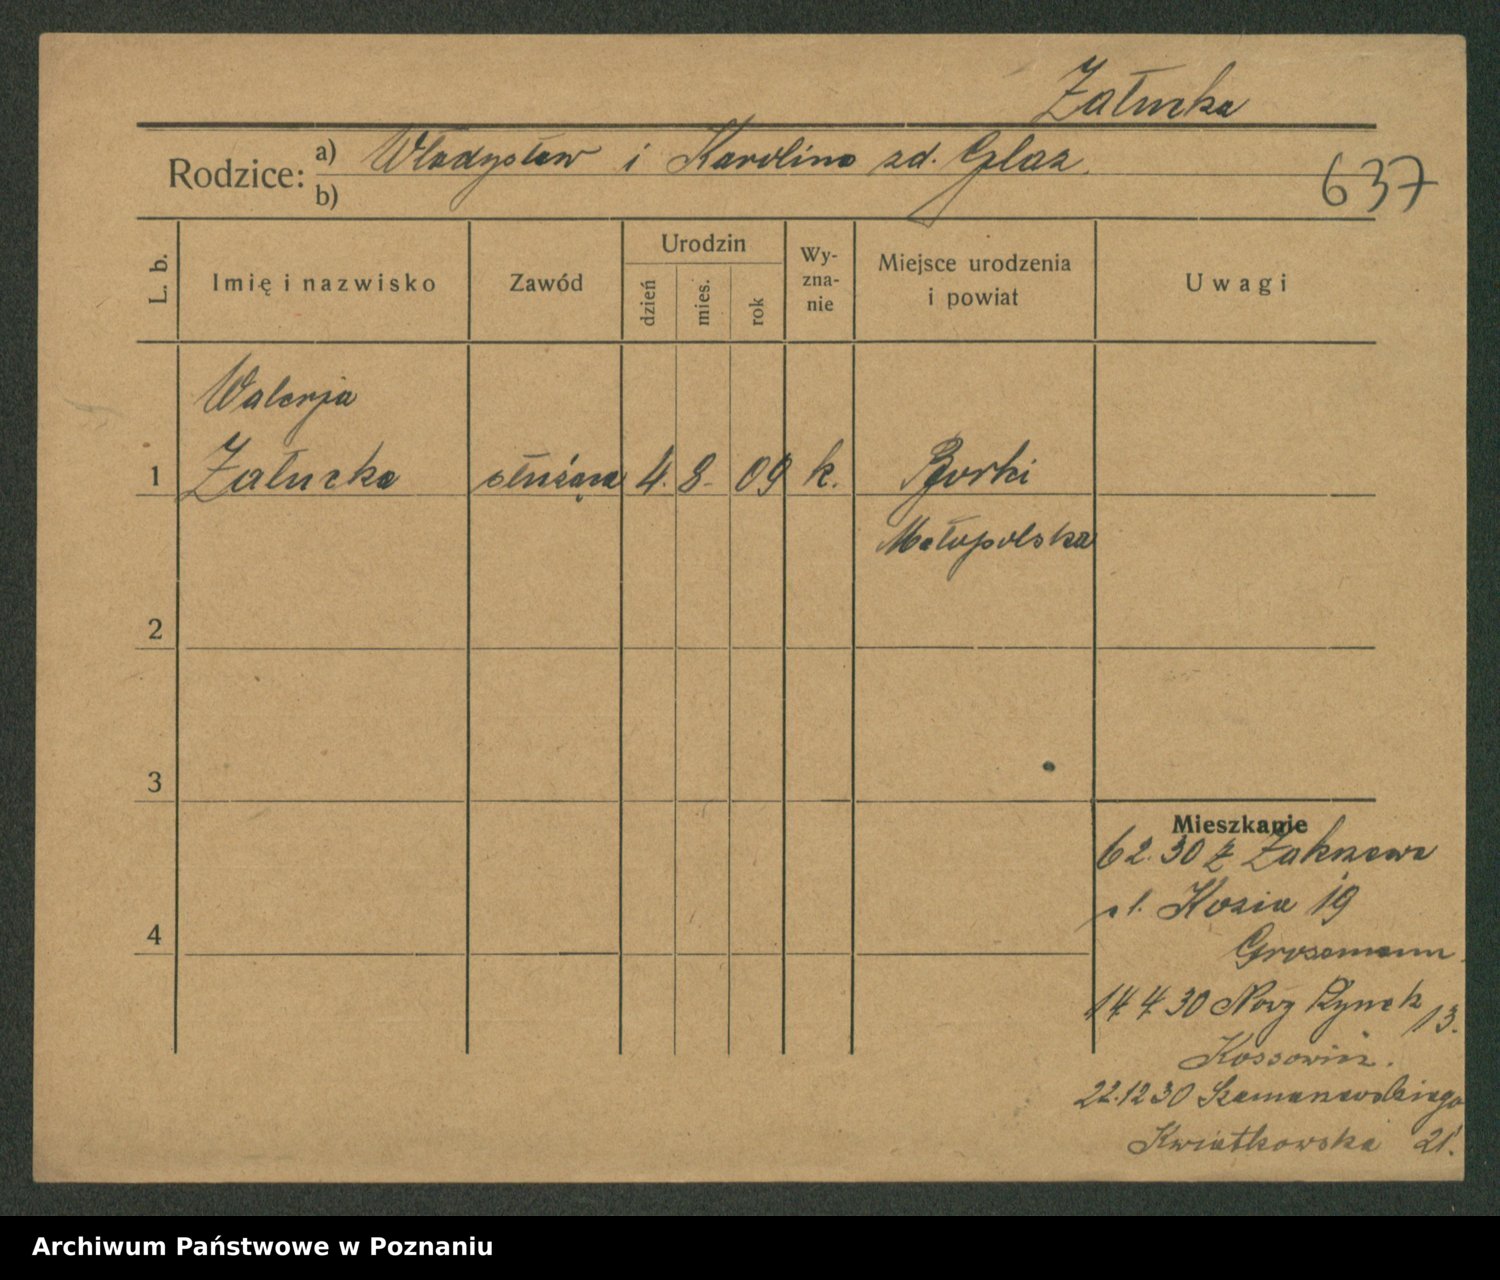 Załucka
Rodzice: a) Władysław i Karolina zd. Glaz.
b)
637
L. b.
Imię i nazwisko
Zawód
Urodzin
dzień
mies.
rok
Wy-
zna-
nie
Miejsce urodzenia
i powiat
Uwagi
Walerja
1 Załucka służąca 4. 8. 09 k. Borki
Małopolska
2
3
4
Mieszkanie
6 2. 30 z
Kozia 19
Grossmann
14 4 30 Nowy Rynek 13.
Kossowicz.
22.12 30 Szamarzewskiego
Kwiatkowska 21.
Archiwum Państwowe w Poznaniu